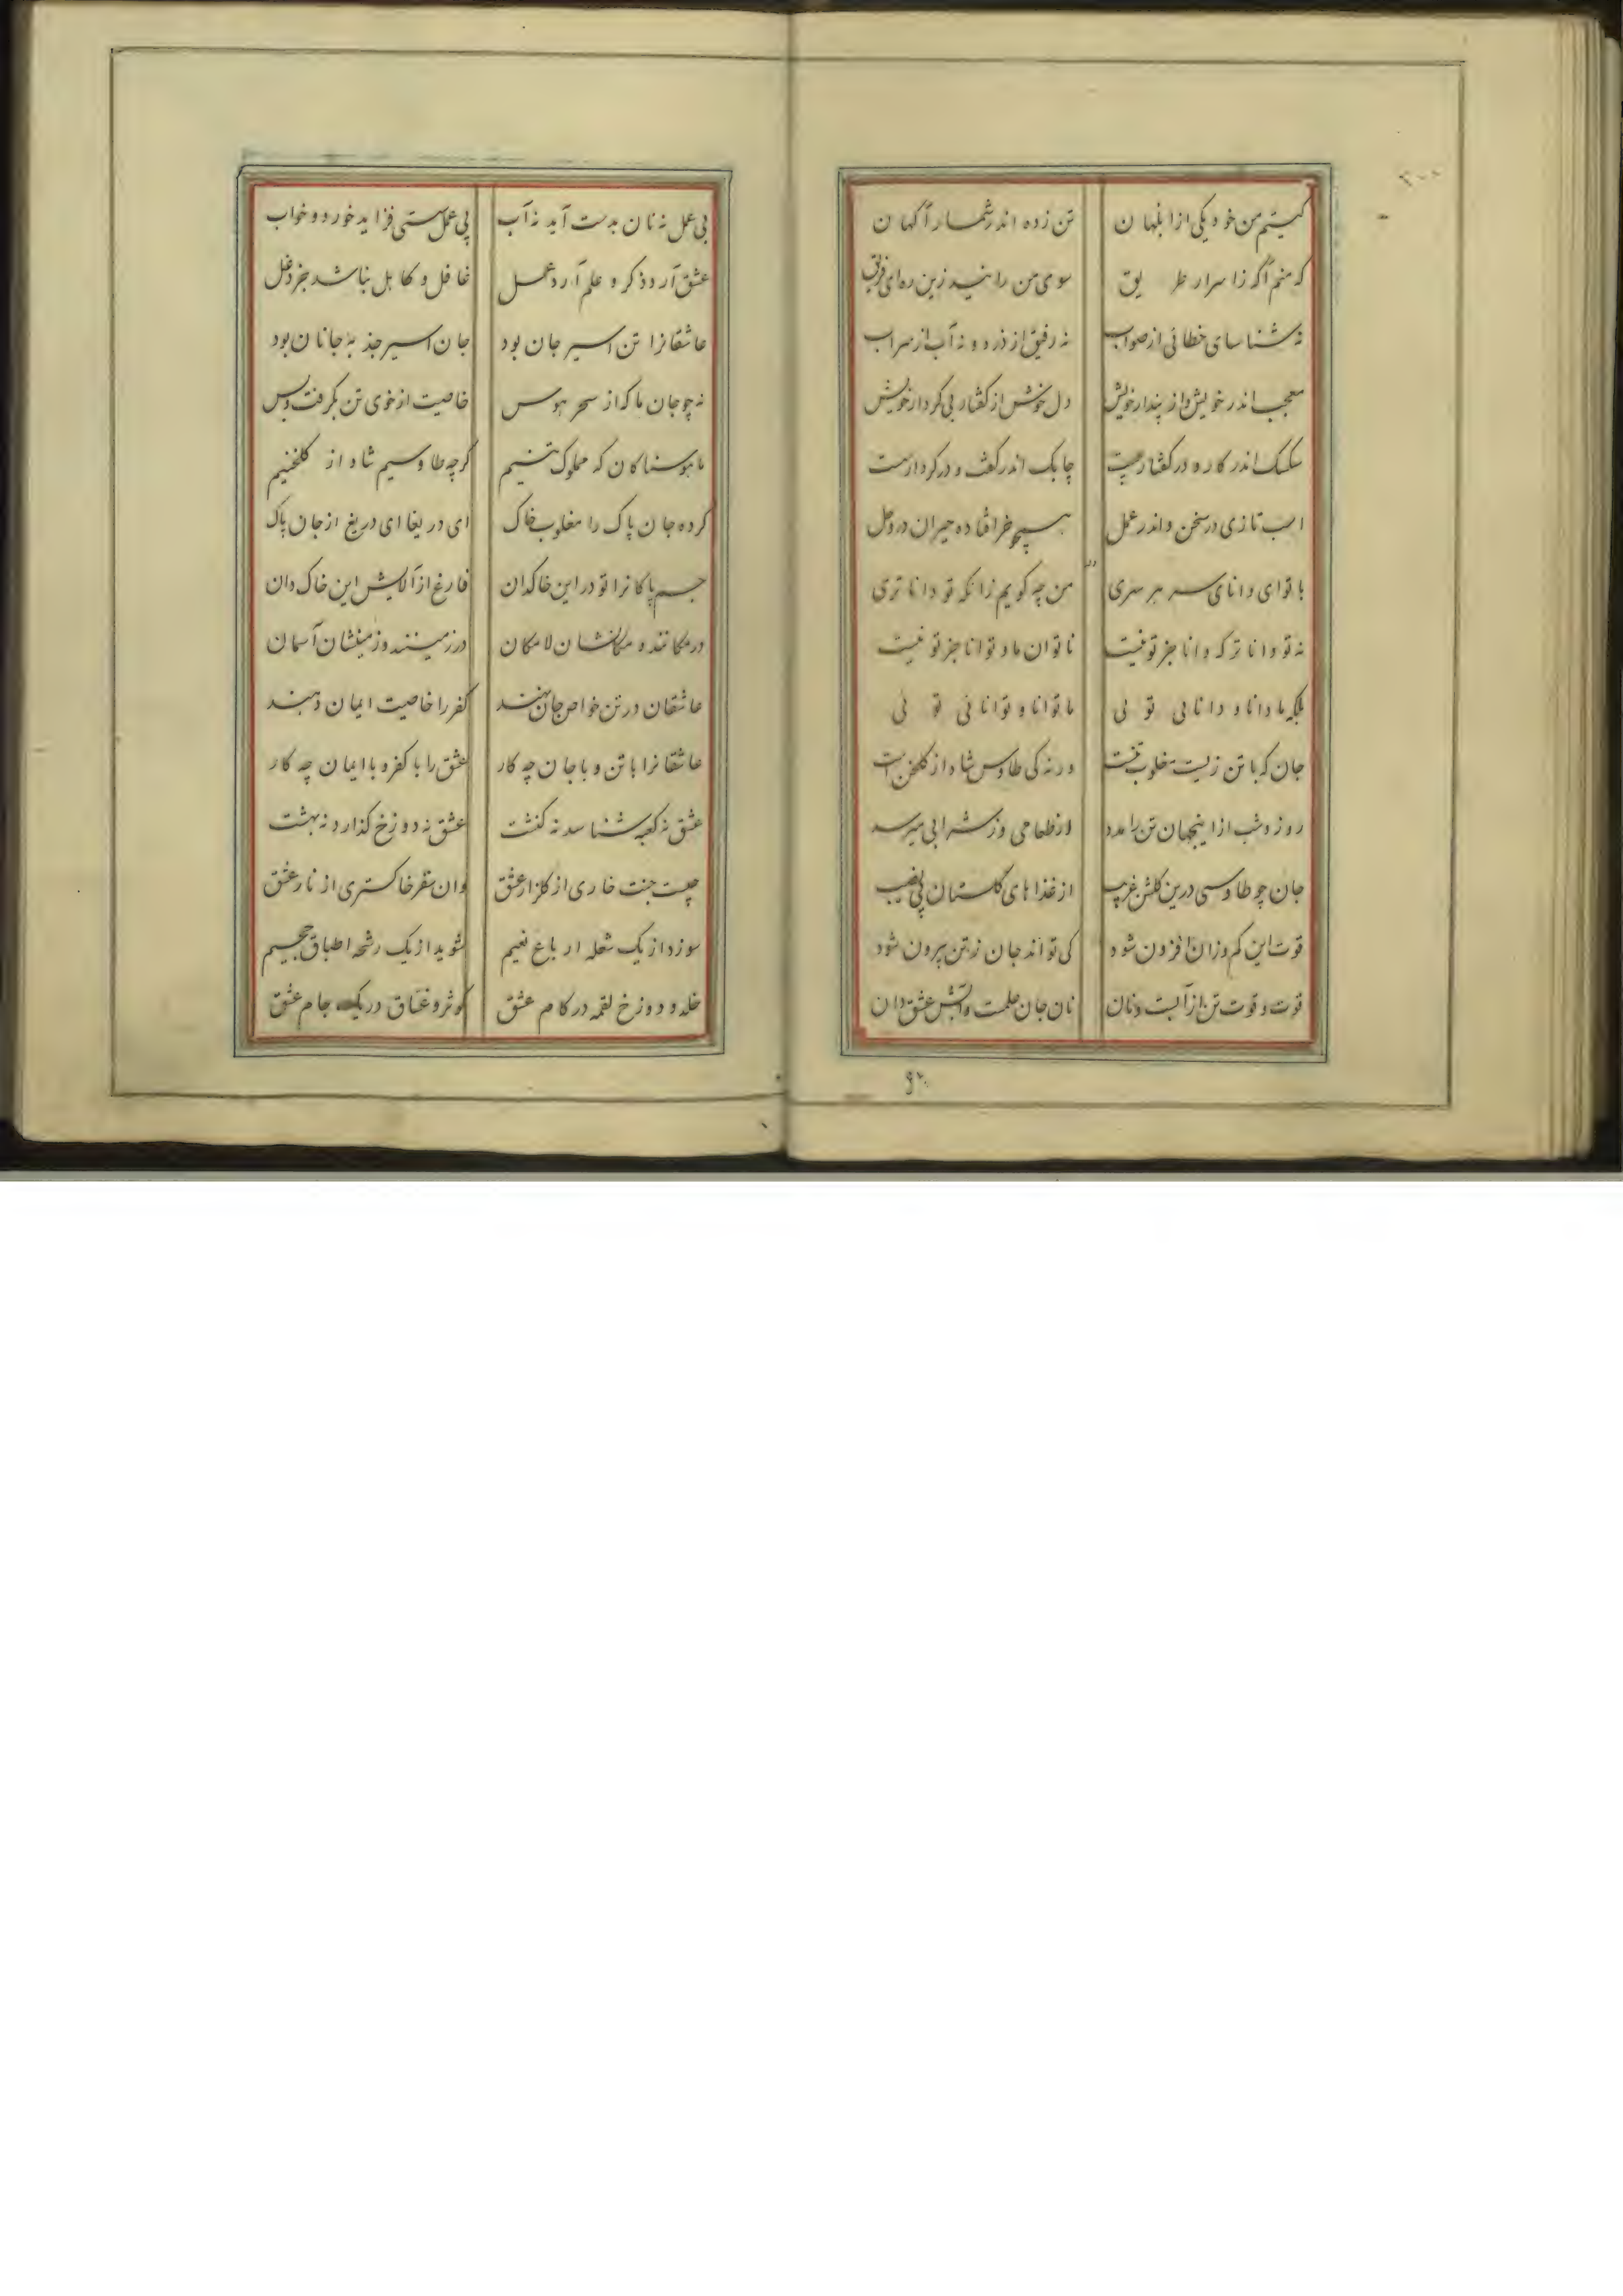 کیستم من خود یکی از ابلهان تن زده اندر شمار آگهان
که منم آگه ز اسرار طریق سوی من رانید زین ره ای فریق
نه شناسای خطائی از صواب نه رفیق از دزد و نه آب از سراب
معجب اندر خویش و از پندار خویش دل خوش از گفتار بی کردار خویش
سکسک اندر کار و در گفتار چست چابک اندر گفت و در کردار سست
اسب تازی در سخن و اندر عمل همچو خر افتاده حیران در وحل
با تو ای دانای سر هر سری من چه گویم زانکه تو داناتری
نه تو داناتر که دانا جز تو نیست ناتوان ما و توانا جز تو نیست
بلکه ما دانا و دانایی توئی ما توانا و توانائی توئی
جان که با تن زیست مغلوب تنست ورنه کی طاوس شاه از گلخن است
روز و شب از اینجهان تن را مدد از طعامی وز شرابی میرسد
جان چو طاوسی درین گلشن غریب از غذاهای گلستان بی نصیب
قوت این کم وزان افزون شود کی تواند جان ز تن بیرون شود
قوت و قوت تن از آبست و نان نان جان علمست و آبش عشق دان
۹۲
بی عمل نه نان بدست آید نه آب بی عمل سستی فزاید خورد و خواب
عشق آرد ذکر و علم آرد عمل غافل و کاهل نباشد جز دغل
عاشقانرا تن اسیر جان بود جان اسیر جذبه جانان بود
نه چو جان ما که از سحر هوس خاصیت از خوی تن بگرفت و بس
ما هوسناکان که مملوک تنیم گرچه طاوسیم شاه از گلخنیم
کرده جان پاک را مغلوب خاک ای دریغا ای دریغ از جان پاک
جسم پاکانرا تو در این خاکدان فارغ از آلایش این خاک دان
در مکانند و مکانشان لامکان در زمینند و زمینشان آسمان
عاشقان در تن خواص جان نهند کفر را خاصیت ایمان دهند
عاشقانرا با تن و با جان چه کار عشق را با کفر و با ایمان چه کار
عشق نه کعبه شناسد نه کنشت عشق نه دوزخ گذارد نه بهشت
چیست جنت خاری از گلزار عشق وان سقر خاکستری از نار عشق
سوزد از یک شعله ار باغ نعیم شوید از یک رشحه اطباق جحیم
خلد و دوزخ لقمه در کام عشق کوثر و غساق در یک جام عشق